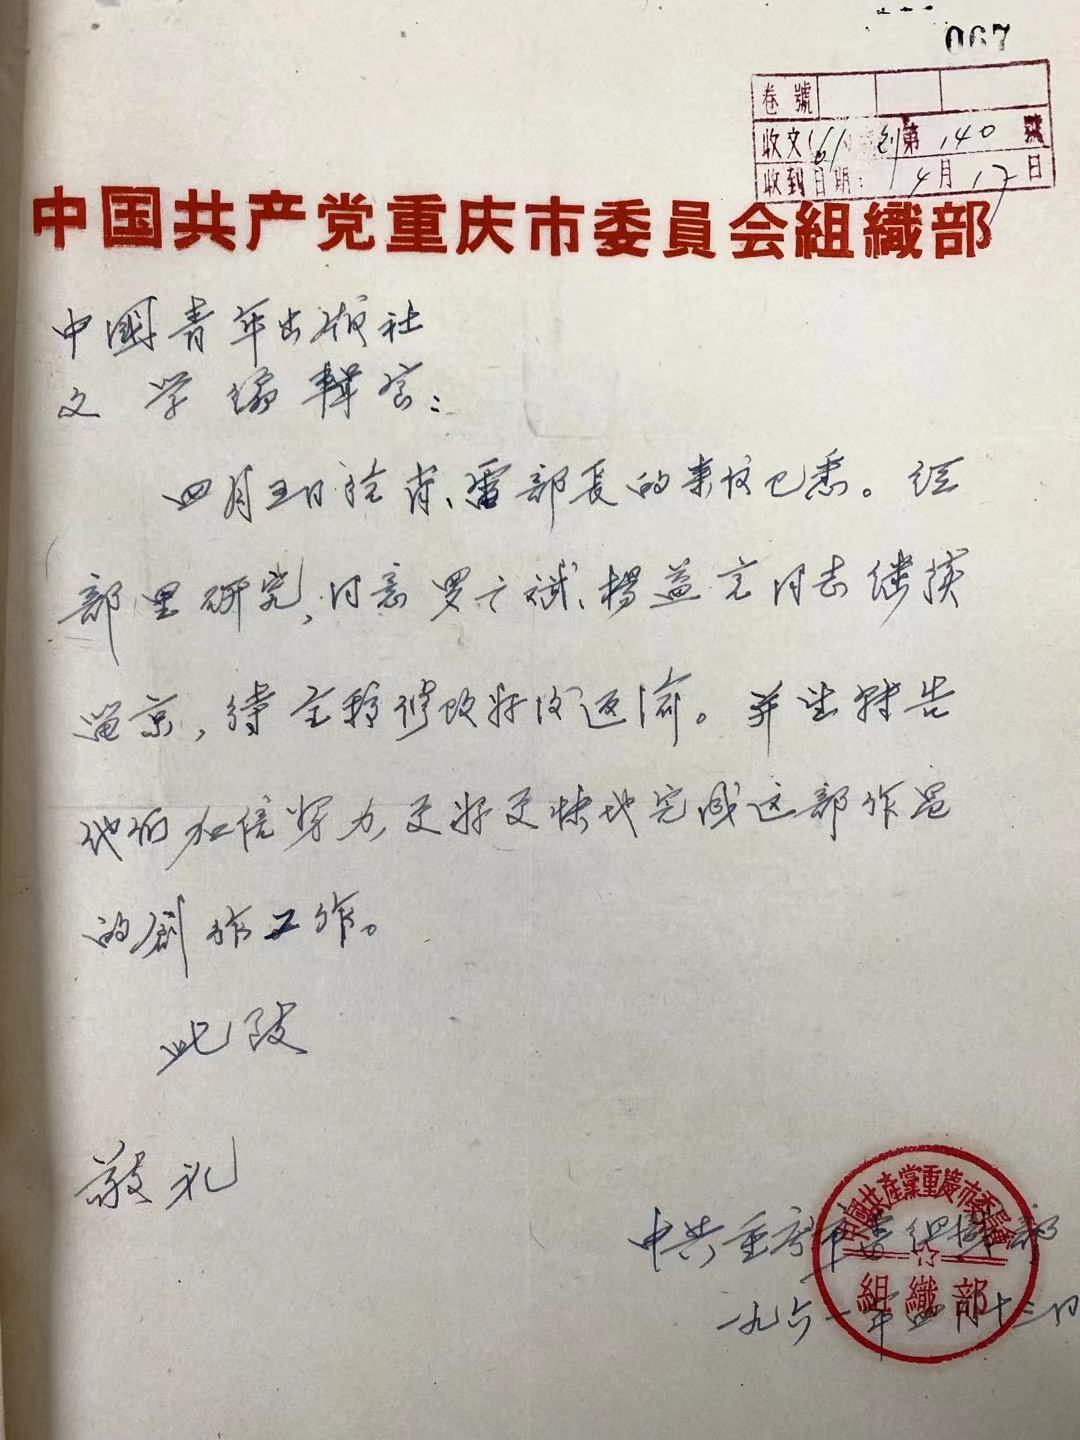 067
卷號
收文(61)創第140號
收到日期：4月17日
中国共产党重庆市委員会組織部
中國青年出版社
文学编辑室：
四月五日给肖、雷部長的来信已悉。经
部里研究，同意罗广斌、楊益言同志继续
留京，待全稿修改好后返渝。并望转告
他们加倍努力，更好更快地完成这部作品
的創作工作。
此致
敬礼
中共重庆市委组织部
一九六一年四月十三日
中國共產黨重慶市委員會
組織部